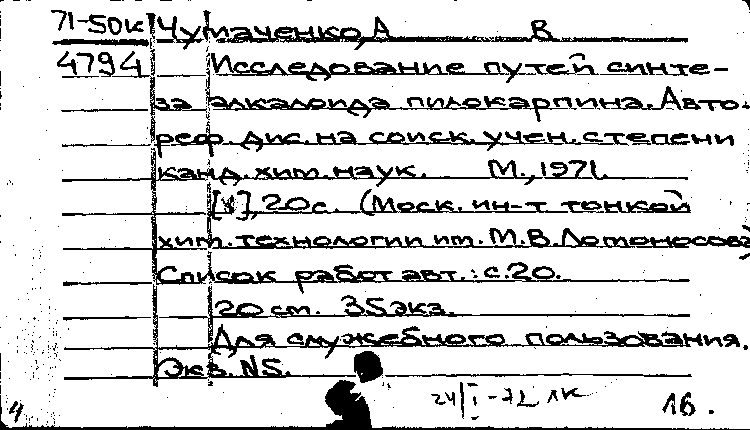 71-50к Чумаченко, А В
4794 Исследование путей синте-
за алкалоида пилокарпина. Авто-
реф. дис. на соиск. учен. степени
канд. хим. наук. М., 1971.
20с. (Моск. ин-т тонкой
хим. технологии им. М.В. Ломоносова)
Список работ авт.: с. 20.
20 см. 35 экз.
Для служебного пользования.
Экз. N5.
24/I-72 ЛК 16.
4